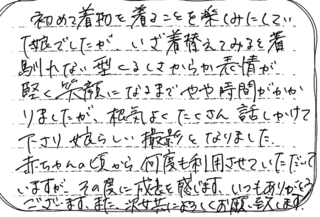 初めて着物を着ることを楽しみにしてい
た娘でしたが、いざ着替えてみると着
馴れない型くるしさからか表情が
堅く笑顔になるまでやや時間がかか
りましたが、根気よくたくさん話しかけて
下さり娘らしい撮影となりました
赤ちゃんの頃から何度も利用させていただいて
いますが、その度に成長を感じます。いつもありがとう
ございます。また、次女共によろしくお願い致します。